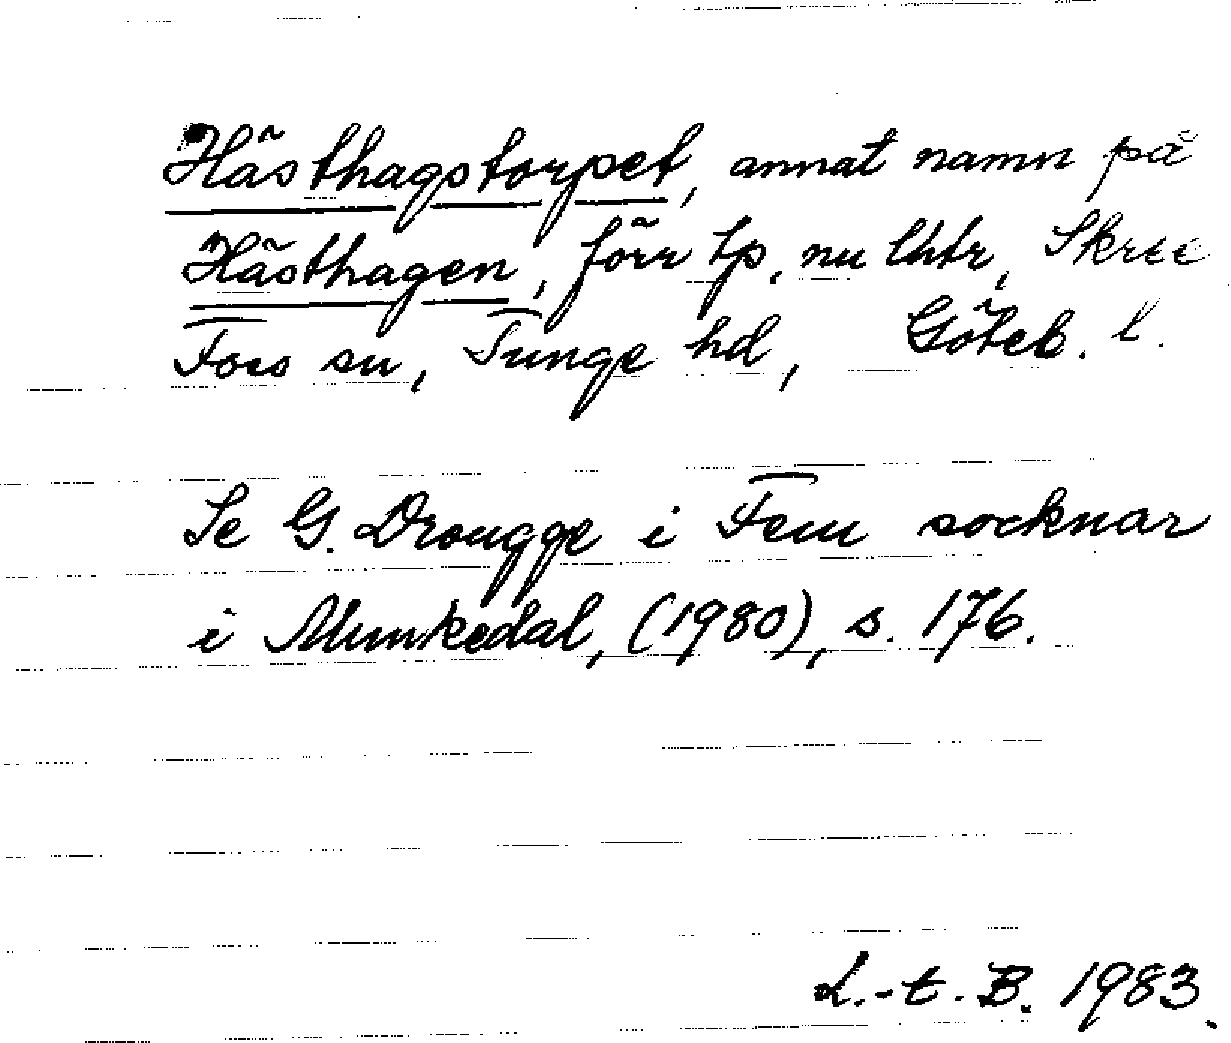 Hästhagstorpet, annat namn på
Hästhagen, förr tp, nu lhtr, Skree
Foss sn, Tunge hd, Göteb. l.
Se G. Drougge i Fem socknar
i Munkedal, (1980), s. 176.
L.-t. B. 1983.